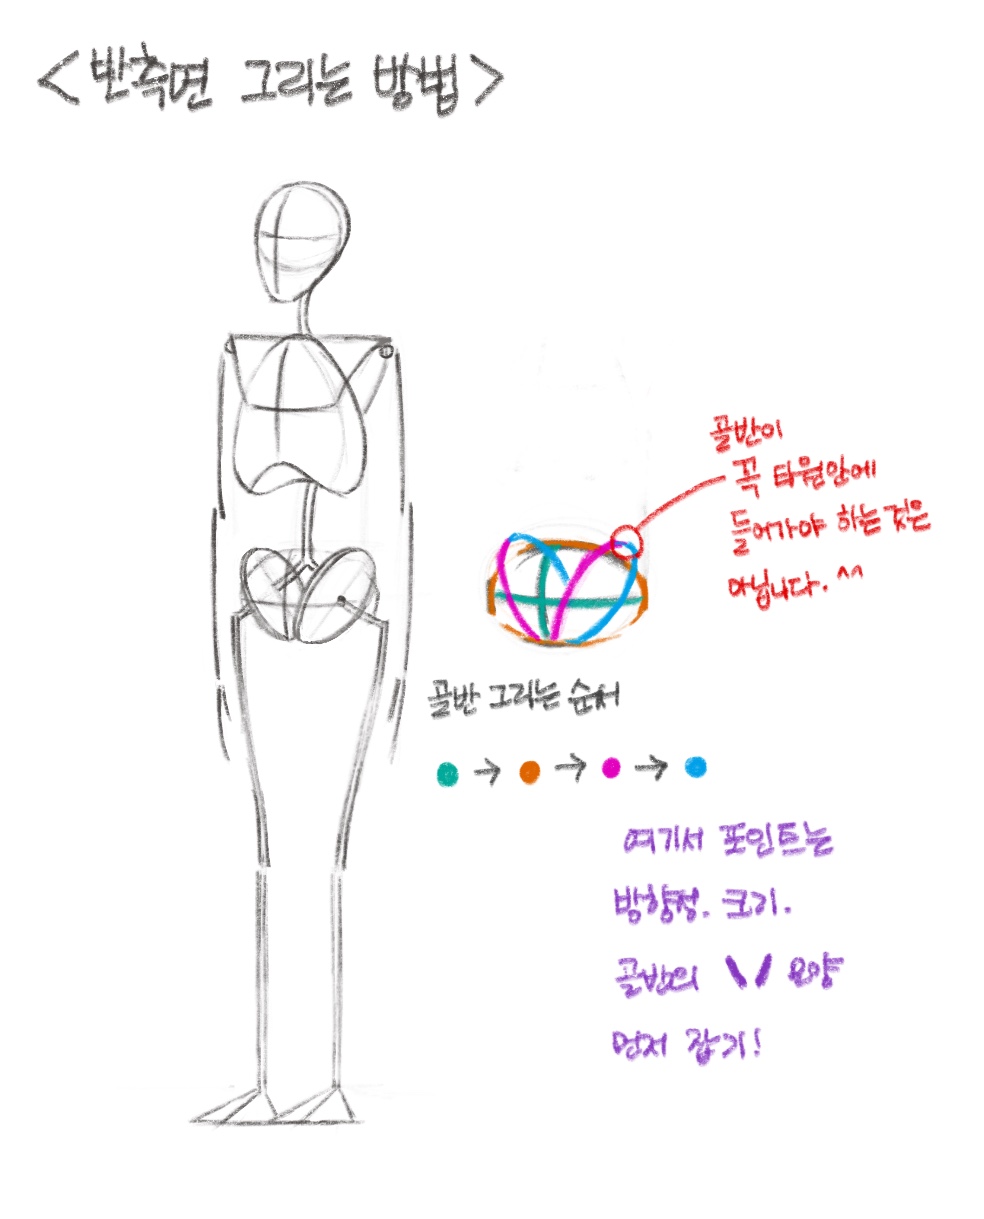 <반측면 그리는 방법>
골반이
꼭 타원안에
들어가야 하는것은
아닙니다. ^^
골반 그리는 순서
→ → →
여기서 포인트는
방향성. 크기.
골반의 \/ 모양
먼저 잡기!